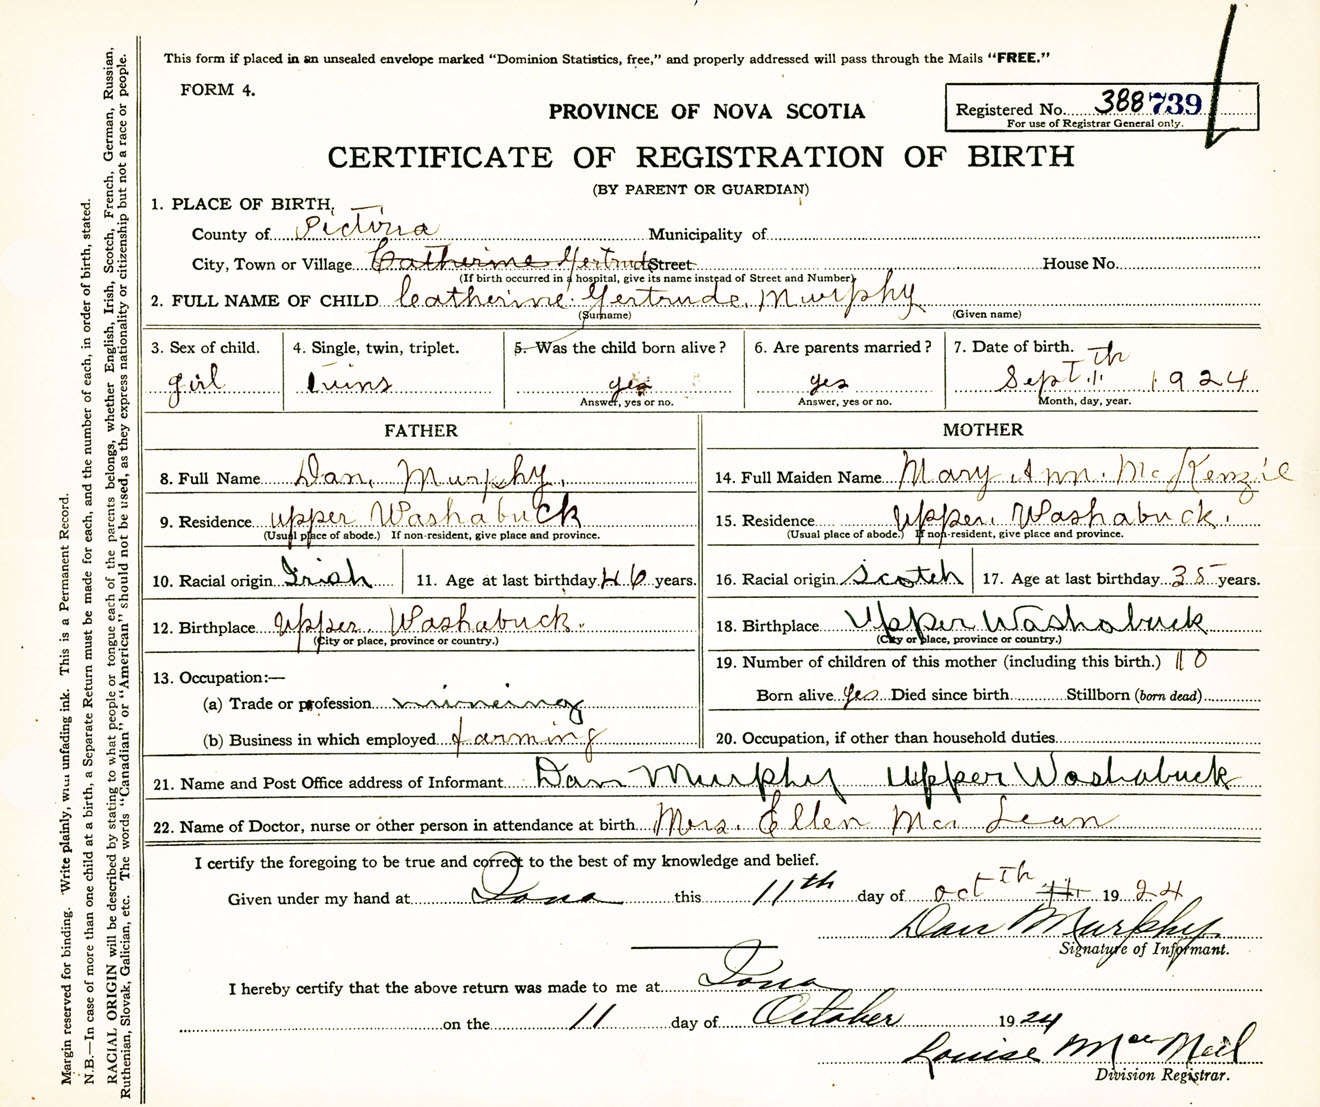 This form if placed in an unsealed envelope marked "Dominion Statistics, free," and properly addressed will pass through the Mails "FREE."
FORM 4.
PROVINCE OF NOVA SCOTIA
Registered No. 388739
For use of Registrar General only.
CERTIFICATE OF REGISTRATION OF BIRTH
(BY PARENT OR GUARDIAN)
1. PLACE OF BIRTH,
County of Victoria Municipality of
City, Town or Village Catherine Gertrude Street House No.
(If birth occurred in a hospital, give its name instead of Street and Number)
2. FULL NAME OF CHILD Catherine Gertrude Murphy
(Surname) (Given name)
3. Sex of child. 4. Single, twin, triplet. 5. Was the child born alive? 6. Are parents married? 7. Date of birth.
girl twins yes yes Sept 11th 1924
Answer, yes or no. Answer, yes or no. Month, day, year.
FATHER MOTHER
8. Full Name Dan Murphy 14. Full Maiden Name Mary Ann McKenzie
9. Residence upper Washabuck 15. Residence Upper Washabuck
(Usual place of abode.) If non-resident, give place and province. (Usual place of abode.) If non-resident, give place and province.
10. Racial origin Irish 11. Age at last birthday 46 years. 16. Racial origin Scotch 17. Age at last birthday 35 years.
12. Birthplace Upper Washabuck 18. Birthplace Upper Washabuck
(City or place, province or country.) (City or place, province or country.)
19. Number of children of this mother (including this birth.) 10
13. Occupation:—
Born alive yes Died since birth Stillborn (born dead)
(a) Trade or profession mineing
(b) Business in which employed farming 20. Occupation, if other than household duties
21. Name and Post Office address of Informant Dan Murphy Upper Washabuck
22. Name of Doctor, nurse or other person in attendance at birth Mrs. Ellen Mc Lean
I certify the foregoing to be true and correct to the best of my knowledge and belief.
Given under my hand at Iona this 11th day of Oct th 11 1924
Dan Murphy
Signature of Informant.
I hereby certify that the above return was made to me at Iona
on the 11 day of October 1924
Louise MacNeil
Division Registrar.
Margin reserved for binding. Write plainly, with unfading ink. This is a Permanent Record.
N.B.—In case of more than one child at a birth, a Separate Return must be made for each, and the number of each, in order of birth, stated.
RACIAL ORIGIN will be described by stating to what people or tongue each of the parents belongs, whether English, Irish, Scotch, French, German, Russian,
Ruthenian, Slovak, Galician, etc. The words "Canadian" or "American" should not be used, as they express nationality or citizenship but not a race or people.